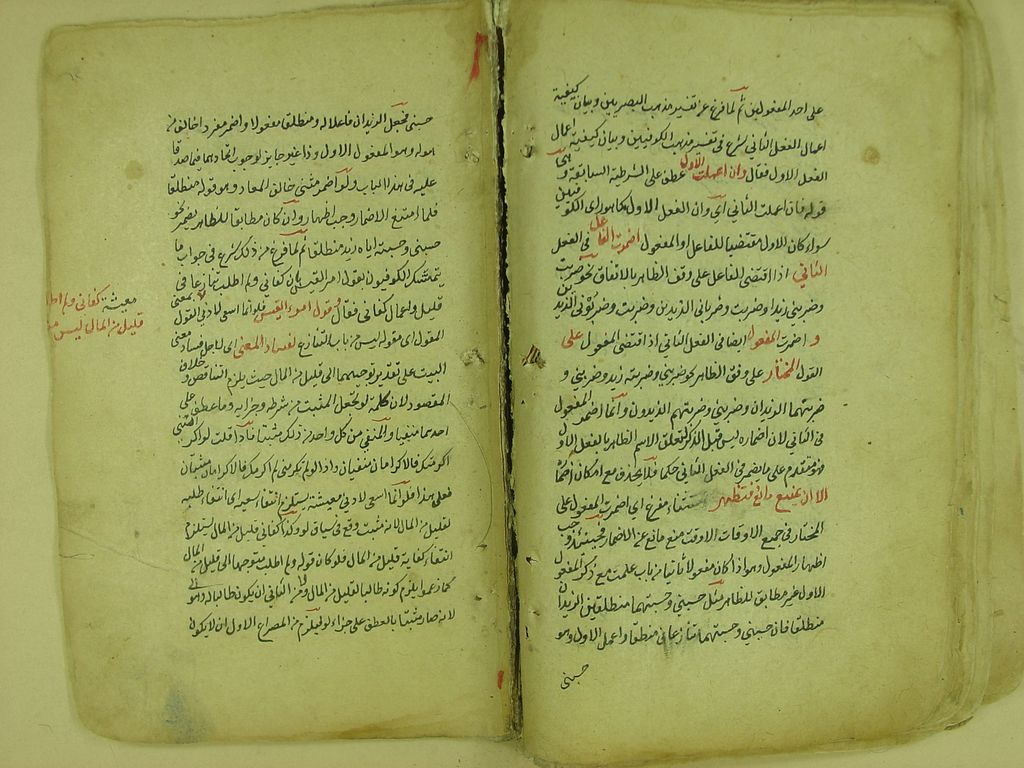 على احد المفعولين ثم لما فرغ عن تفسير مذهب البصريين وبيان كيفية
اعمال الفعل الثاني شرع في تفسير مذهب الكوفيين وبيان كيفية اعمال
الفعل الاول فقال وان اعملت الاول عطف على الشرطية السابقة وهي
قوله فان اعملت الثاني اى وان الفعل الاول كما هو راى الكوفيين
سواء كان الاول مقتضيا للفاعل او المفعول اضمرت الفاعل في الفعل
الثاني اذا اقتضى الفاعل على وفق الظاهر بالاتفاق نحو ضربت
وضربني زيد وضربت وضرباني الزيدين وضربت وضربوني الزيدين
و اضمرت المفعول ايضا في الفعل الثاني اذا اقتضى المفعول على
القول المختار على وفق الظاهر نحو ضربني وضربته زيد وضربني و
ضربتهما الزيدان وضربني وضربتهم الزيدون وانما اضمر المفعول
في الثاني لان اضماره ليس قبل الذكر لتعلق الاسم الظاهر بالفعل الاول
فهو متقدم على ما ضمر في الفعل الثاني حكما فلا يحذف مع امكان اضماره
الا ان يمنع مانع فتظهر استثناء مفرغ اى اضمرت المفعول على
المختار في جميع الاوقات الا وقت منع مانع عن الاضمار فحينئذ وجب
اظهار المفعول وهو اذا كان مفعولا ثانيا من باب علمت مع ذكر المفعول
الاول غير مطابق للظاهر مثل حسبني وحسبتهما منطلقين الزيدان
منطلقا فان حسبني وحسبتهما تنازعا في منطلقا واعمل الاول وهو
حسبني
حسبني فجعل الزيدان فاعلا له ومنطلقا مفعولا واضمر مفردا خالف مر
هوله وهو المفعول الاول وذا غير جايز لوجوب اتحادهما فيما صدقا
عليه في هذا الباب ولو اضمر مثنى خالف المعاد وهو قوله منطلقا
فلما امتنع الاضمار وجب الاظهار وان كان مطابقا للظاهر يضمر نحو
حسبني وحسبته اياه زيد منطلقا ثم لما فرغ من ذلك شرع في جواب ما
يتمسك الكوفيون لقول امرء القيس بان كفاني ولم اطلب تنازعا في
قليل واعمال كفاني فقال وقول امرء القيس فلو انما اسعى لادنى
المقول اى مقوله ليس من باب التنازع لفساد المعنى اى لاجل فساد معنى
البيت على تقدير توجيههما الى قليل من المال حيث يلزم التناقض وخلاف
المقصود لان كلمة لو تجعل المثبت من شرطه وجزايه وما عطف على
احدهما منفيا والمنفي من كل واحد من ذلك مثبتا فاذا قلت لو اكرمتني
اكرمتك فالاكرامان منفيان واذا لو لم تكرمني لم اكرمك فالاكرامان مثبتان
فعلى هذا فلو انما اسعى لادنى معيشة يستلزم انتفاء سعيه اى انتفاء طلبه
لقليل من المال لانه مثبت وقع في سياق لو وكذا كفاني قليل من المال يستلزم
انتفاء كفاية قليل من المال فلو كان قوله ولم اطلب متوجها الى قليل من المال
كما زعموا يلزم كونه طالبا لقليل من المال ومن الثاني ان يكون طالبا له
لانه صار مثبتا بالعطف على جزاء لو فيلزم من المصراع الاول ان لا يكون
معيشة كفاني ولم اطلب
قليل من المال ليس